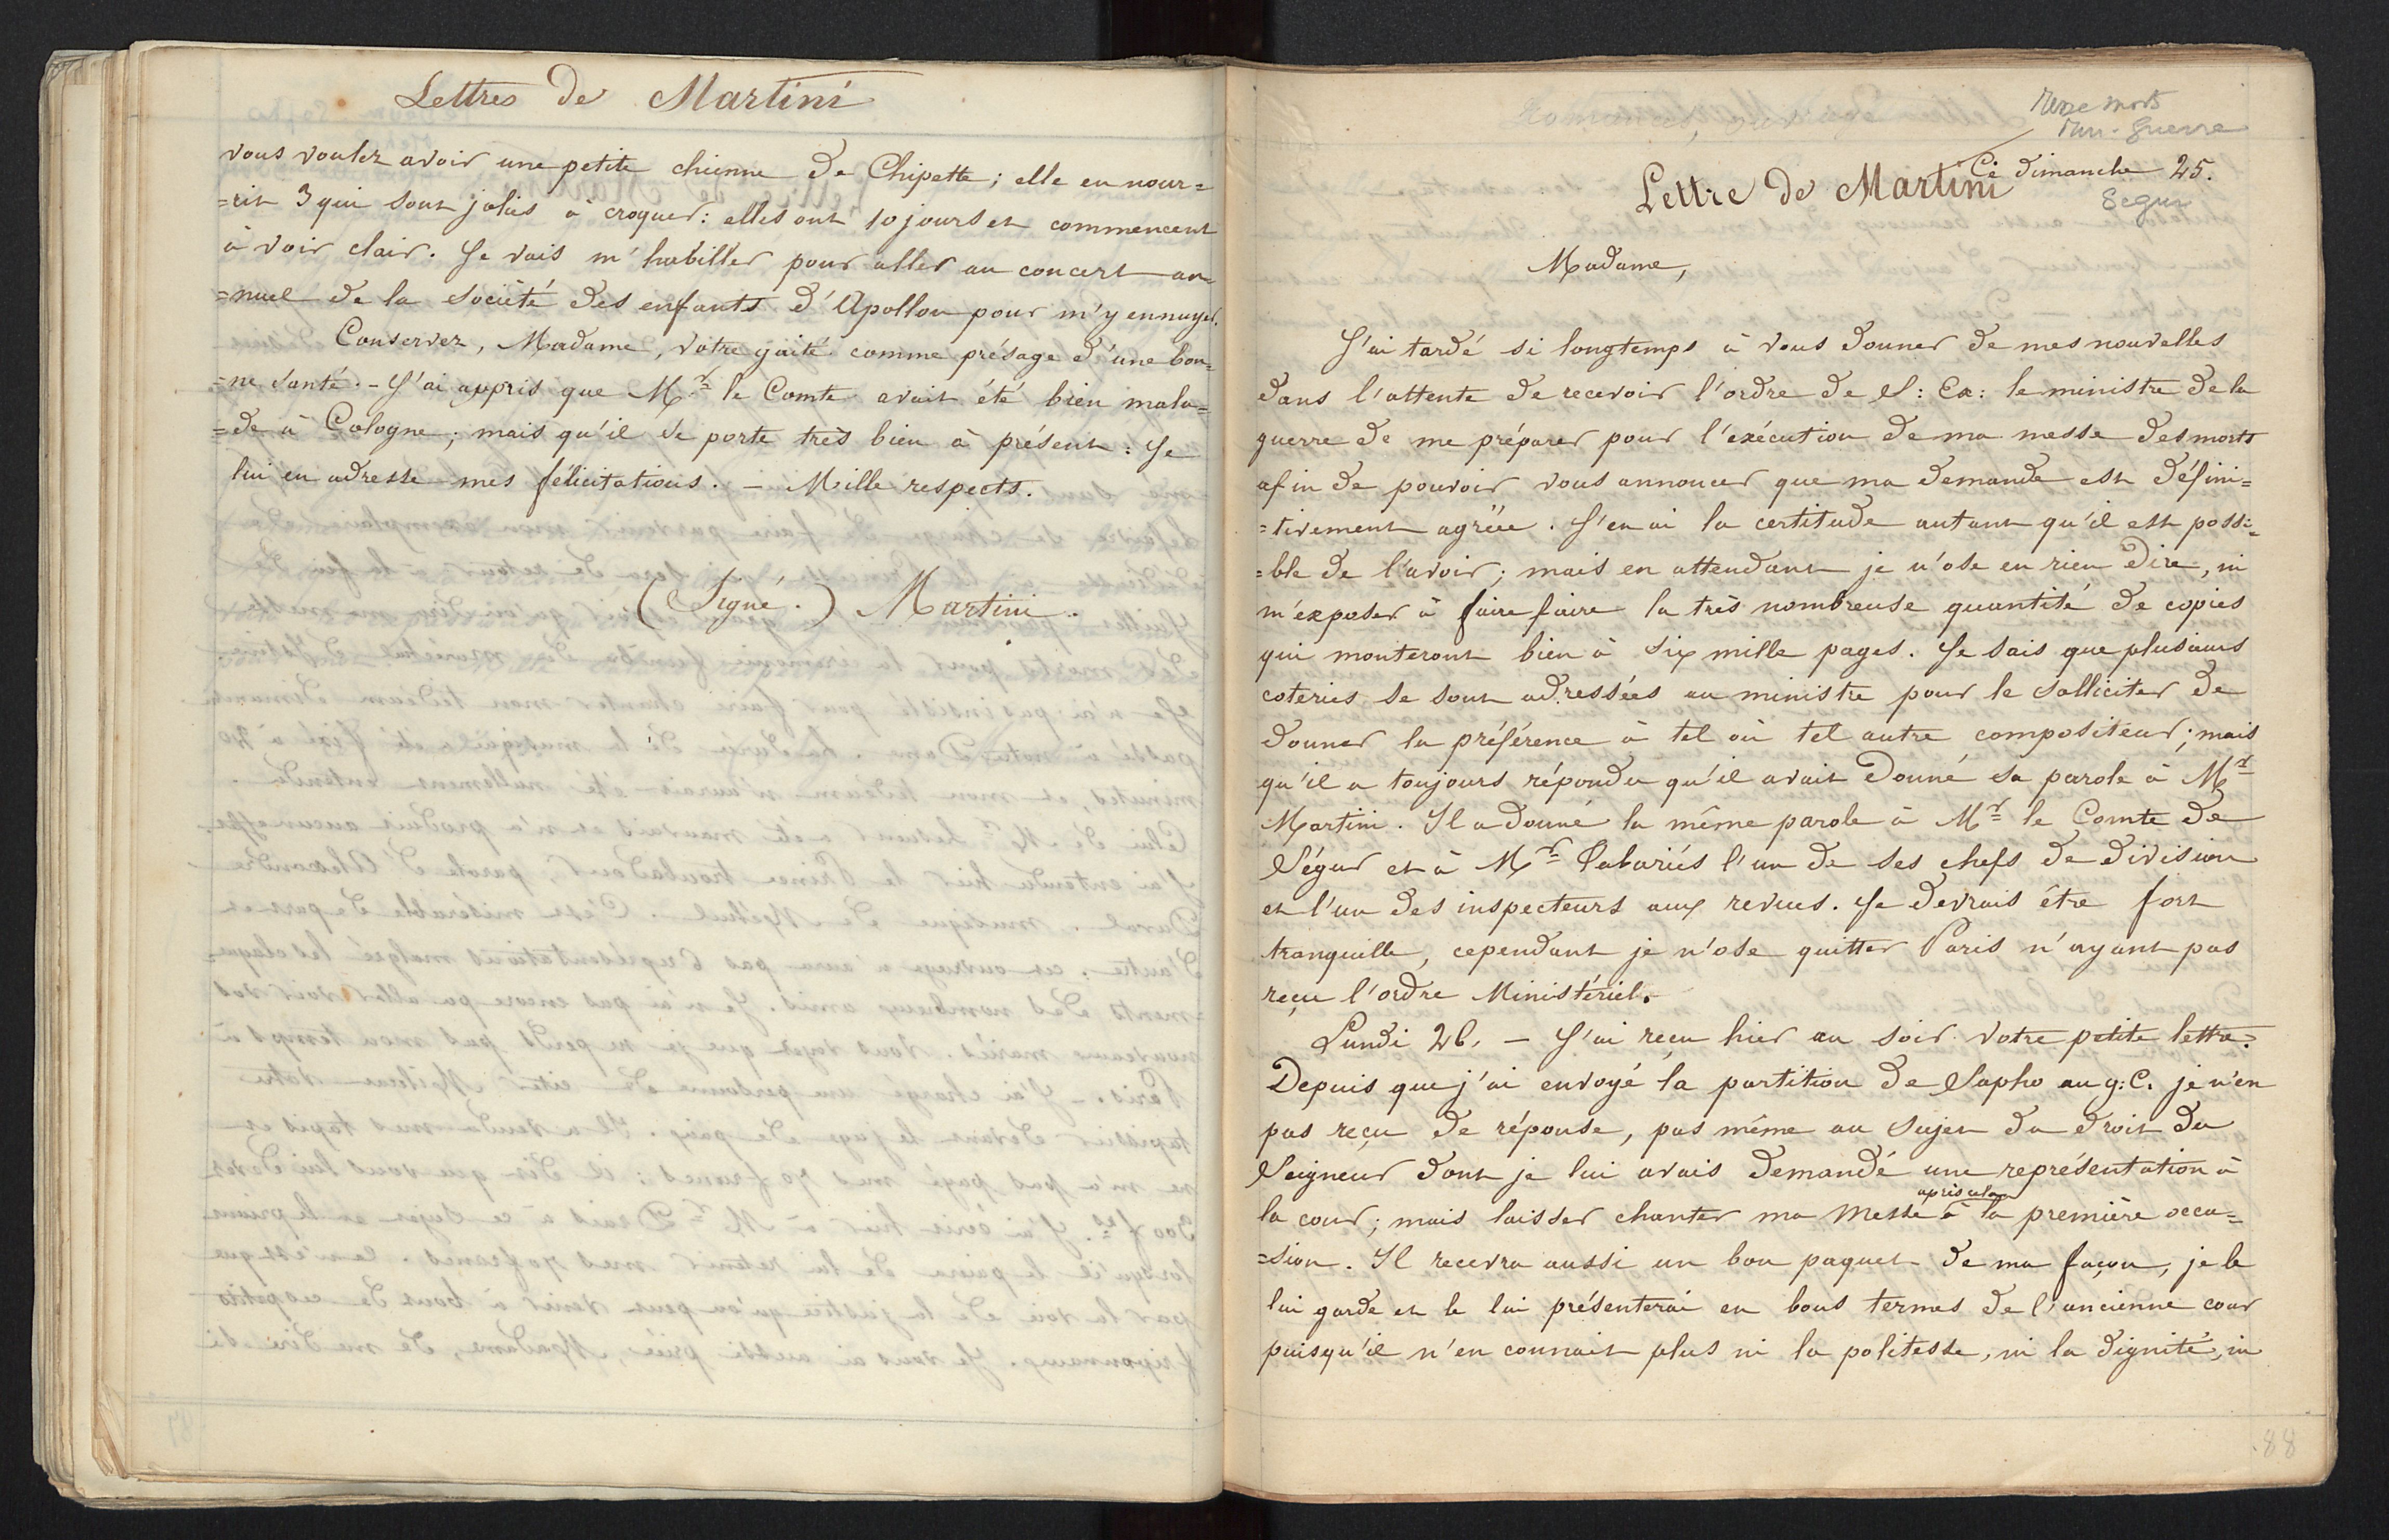 Lettres de Martini
vous voulez avoir une petite chienne de Chipette; elle en nour=
=rit 3 qui sont jolies à croquer: elles ont 10 jours et commencent
à voir clair. Je vais m'habiller pour aller au concert an=
=nuel de la Société des enfants d'Apollon pour m'y ennuyer.
Conservez, Madame, votre gaité comme présage d'une bon=
=ne santé. - J'ai appris que Mr le Comte avait été bien mala=
=de à Cologne; mais qu'il se porte très bien à présent: Je
lui en adresse mes félicitations. - Mille respects.
(Signé.) Martini.
Messe morts
Min. Guerre
Ce dimanche 25.
Lettre de Martini
Segur
Madame,
J'ai tardé si longtemps à vous donner de mes nouvelles
dans l'attente de recevoir l'ordre de S: Ex: le ministre de la
guerre de me préparer pour l'exécution de ma messe des morts
afin de pouvoir vous annoncer que ma demande est défini=
=tivement agréée. J'en ai la certitude autant qu'il est possi=
=ble de l'avoir; mais en attendant je n'ose en rien dire, ni
m'exposer à faire faire la très nombreuse quantité de copies
qui monteront bien à six mille pages. Je sais que plusieurs
coteries se sont adressées au ministre pour le solliciter de
donner la préférence à tel ou tel autre compositeur; mais
qu'il a toujours répondu qu'il avait donné sa parole à Mr
Martini. Il a donné la même parole à Mr le Comte de
Ségur et à Mr l'un de ses chefs de division
et l'un des inspecteurs aux revues. Je devrais être fort
tranquille, cependant je n'ose quitter Paris n'ayant pas
reçu l'ordre Ministériel.
Lundi 26. - J'ai reçu hier au soir votre petite lettre.
Depuis que j'ai envoyé la partition de Sapho au g: C. je n'en
pas reçu de réponse, pas même au sujet du droit du
Seigneur dont je lui avais demandé une représentation à
la cour; mais laisser chanter ma Messe après cela à la première occa=
=sion. Il recevra aussi un bon paquet de ma façon, je le
lui garde et le lui présenterai en bons termes de l'ancienne cour
puisqu'il n'en connait plus ni la politesse, ni la dignité, ni
88.